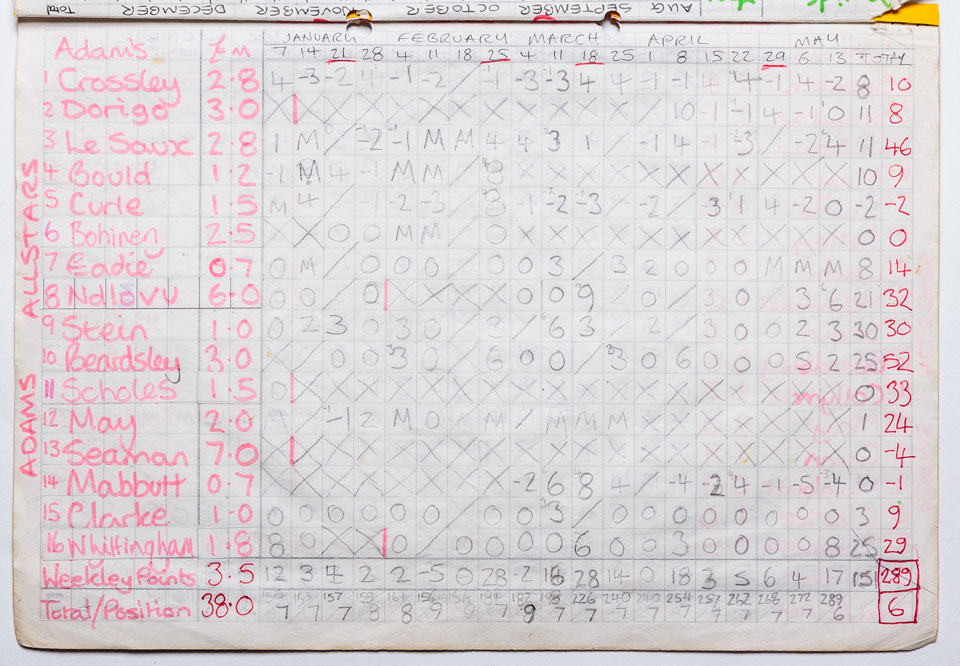 Total DECEMBER NOVEMBER OCTOBER SEPTEMBER AUG
JANUARY FEBRUARY MARCH APRIL MAY
Adam's £·M 7 14 21 28 4 11 18 25 4 11 18 25 1 8 15 22 29 6 13 TOTAL
ALLSTARS
ADAMS
1 Crossley 2·8 4 -3 -2 4 -1 -2 / -1 -3 -3 4 4 -1 -1 4 -4 -1 4 -2 8 10
2 Dorigo 3·0 X X X X X X X X X X X X 10 -1 -1 4 -1 0 11 8
3 Le Saux 2·8 1 M / -2 -1 M M 4 4 3 1 / -1 4 -1 -3 / -2 4 11 46
4 Bould 1·2 -1 M 4 -1 M M / 8 X X X X X X X X X X X 10 9
5 Curle 1·5 M 4 / -1 -2 -3 / 3 -1 -2 -3 / -2 / 3 1 4 -2 0 -2 -2
6 Bohinen 2·5 X X 0 0 M M / 0 X X X X X X X X X X X 0 0
7 Eadie 0·7 0 M / 0 0 0 / 0 0 3 / 3 2 0 0 0 M M M 8 14
8 Ndlovu 6·0 0 0 / 0 X X X X 0 0 9 / 0 / 3 0 / 3 6 21 32
9 Stein 1·0 0 2 3 0 3 0 / 3 / 6 3 / 2 / 3 0 0 2 3 30 30
10 Beardsley 3·0 0 / 0 0 3 0 / 6 0 0 / 3 0 6 0 0 0 5 2 25 52
11 Scholes 1·5 0 X X X X X X X X X X X X X X X X X X 0 33
12 May 2·0 M / -1 2 M 0 M M / M M M 1 24
13 Seaman 7·0 X X X X X X X X X X X X X X X X X X 0 -4
14 Mabbutt 0·7 X X X X X X X X -2 6 8 4 / -4 -2 4 -1 -5 4 0 -1
15 Clarke 1·0 0 0 0 0 0 0 / 0 0 3 / 0 0 0 0 0 0 0 0 3 9
16 Whittingham 1·8 8 0 X X 0 / 0 0 0 0 6 0 0 3 0 0 0 0 8 25 29
Weekley Points 3.5 12 3 7 2 2 -5 0 28 -2 16 28 14 0 18 3 5 6 4 17 151 289
Totat/Position 38·0 157 226 240 240 254 257 262 268 272 289
7 7 7 8 8 9 7 7 9 7 7 7 7 7 7 7 7 6 6